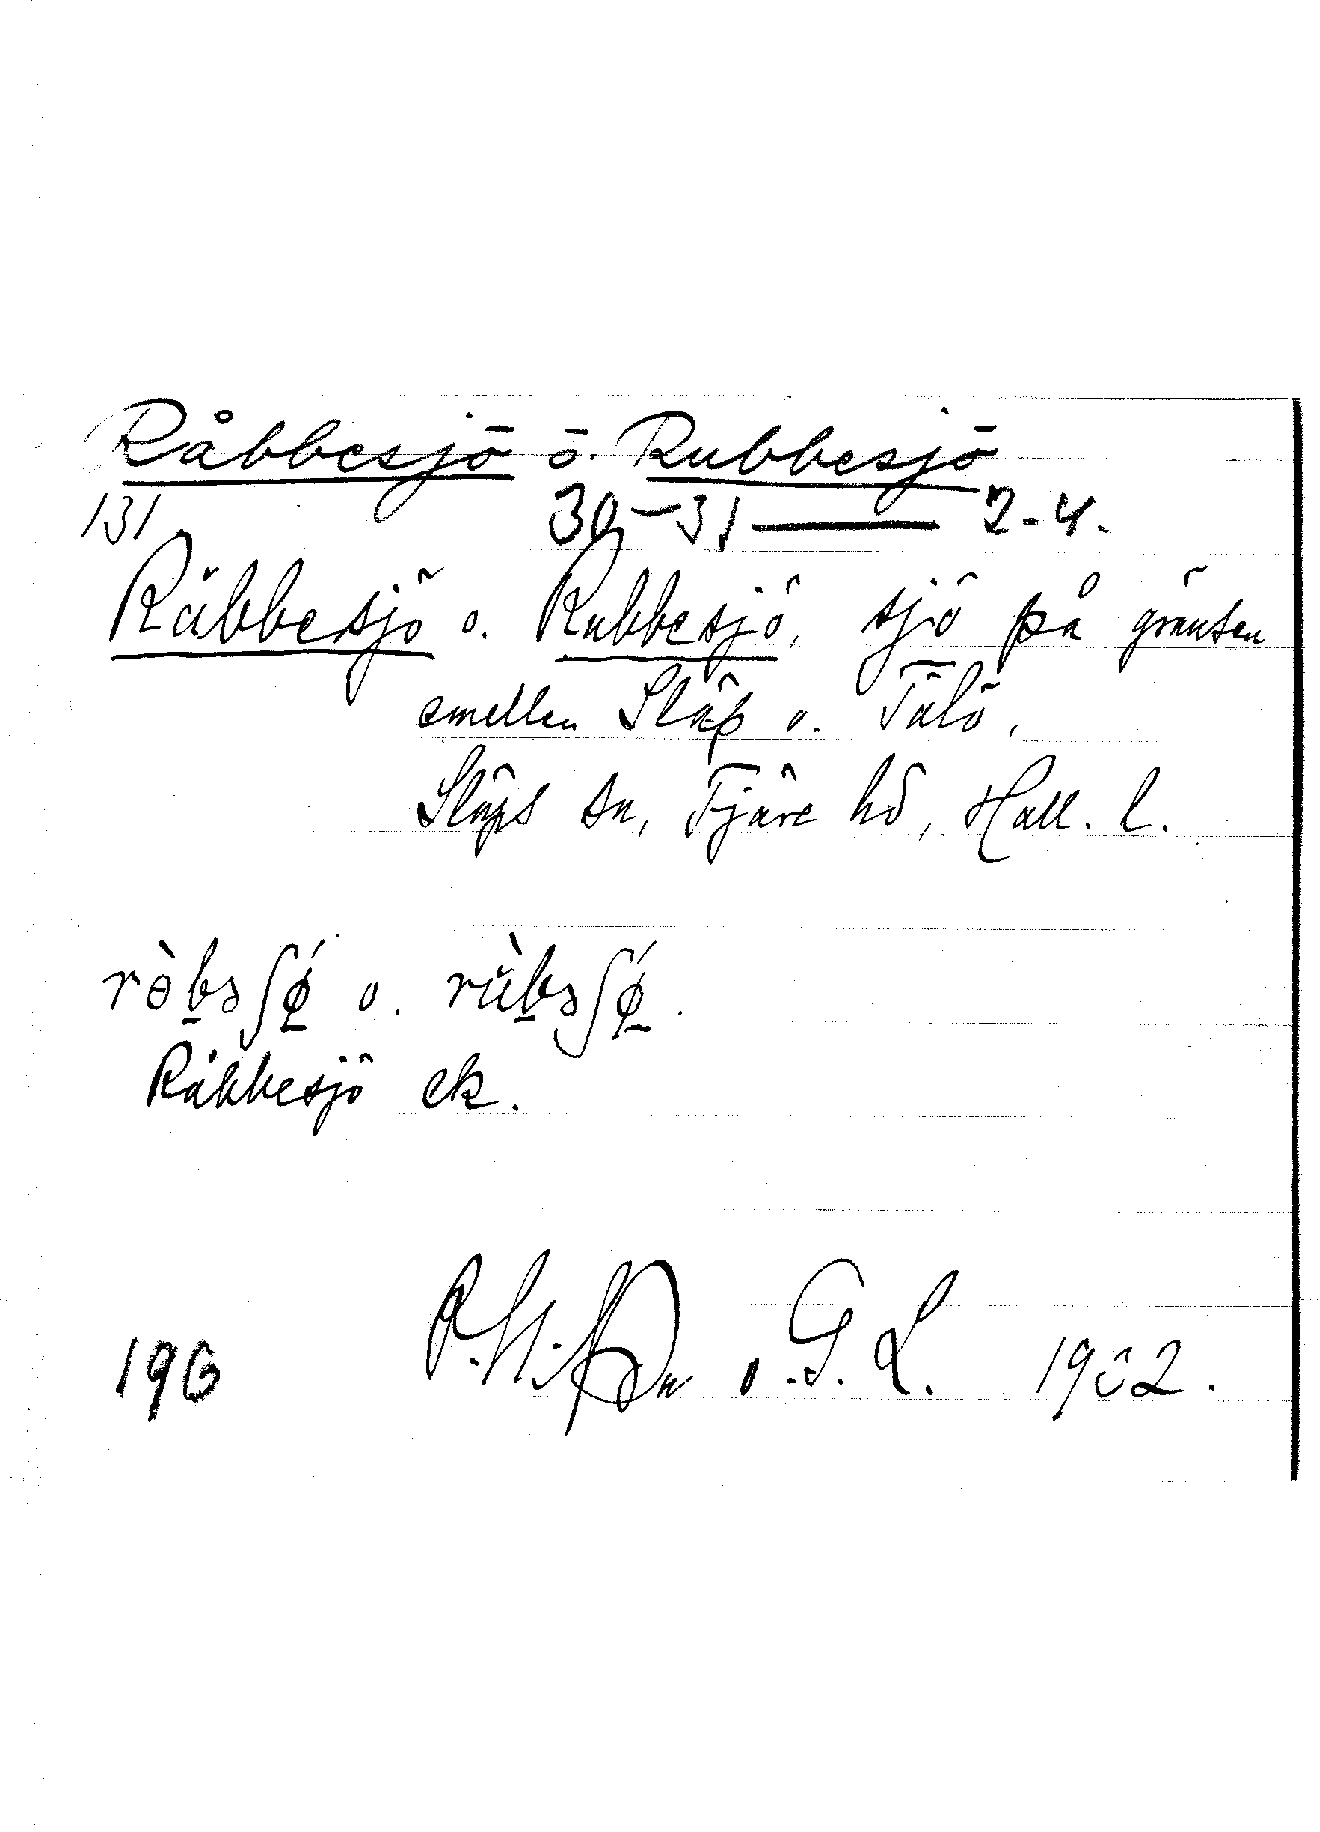 Råbbesjö o. Rubbesjö
131 30–31 — 2-4.
Råbbesjö o. Rubbesjö, sjö på gränsen
emellan Släp o. Tölö,
Släps sn, Fjäre hd, Hall. l.
ròbəʃǿ o. rùbəʃǿ.
Råbbesjö ek.
196 o. G. L. 1902.